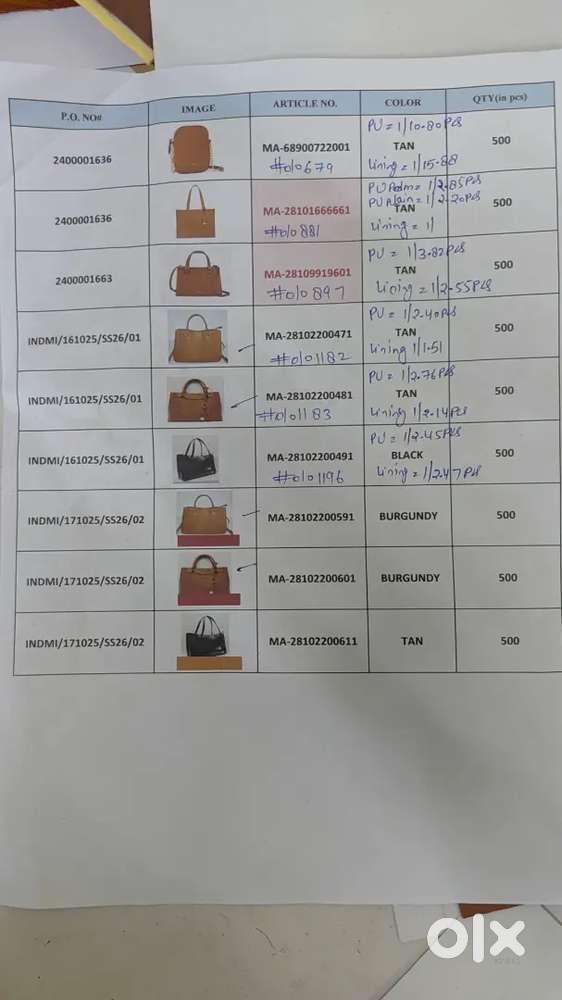 P.O. NO# IMAGE ARTICLE NO. COLOR QTY(in pcs)
PU = 1/10.80 Pcs
2400001636 MA-68900722001 TAN 500
#010679 Lining = 1/15.88
PU Palm = 1/2.85 Pcs
PU Plain = 1/2.20 Pcs
2400001636 MA-28101666661 TAN 500
#010881 Lining = 1/
PU = 1/3.82 Pcs
2400001663 MA-28109919601 TAN 500
#010897 Lining = 1/2.55 Pcs
PU = 1/2.40 Pcs
INDMI/161025/SS26/01 MA-28102200471 TAN 500
#0101182 Lining 1/1.51
PU = 1/2.76 Pcs
INDMI/161025/SS26/01 MA-28102200481 TAN 500
#0101183 Lining = 1/2.14 Pcs
PU = 1/2.45 Pcs
INDMI/161025/SS26/01 MA-28102200491 BLACK 500
#0101196 Lining = 1/2.47 Pcs
INDMI/171025/SS26/02 MA-28102200591 BURGUNDY 500
INDMI/171025/SS26/02 MA-28102200601 BURGUNDY 500
INDMI/171025/SS26/02 MA-28102200611 TAN 500
olx